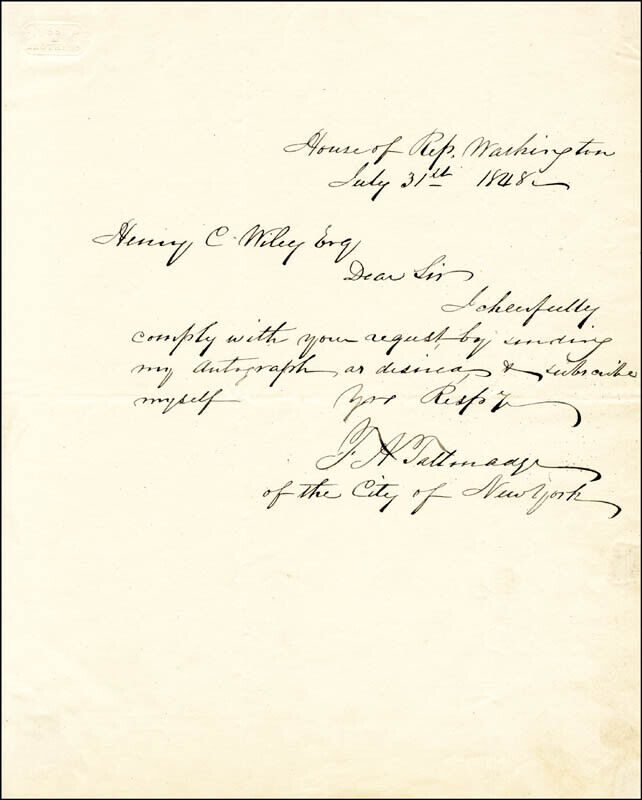 House of Rep. Washington
July 31st 1848
Henry C. Wiley Esq
Dear Sir
I cheerfully
comply with your request by sending
my autograph as desired, & subscribe
myself Yrs Resp'y
F A Tallmadge
of the City of New York